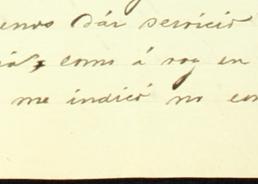 enos dár servicio
como á roy en
me indicó no con